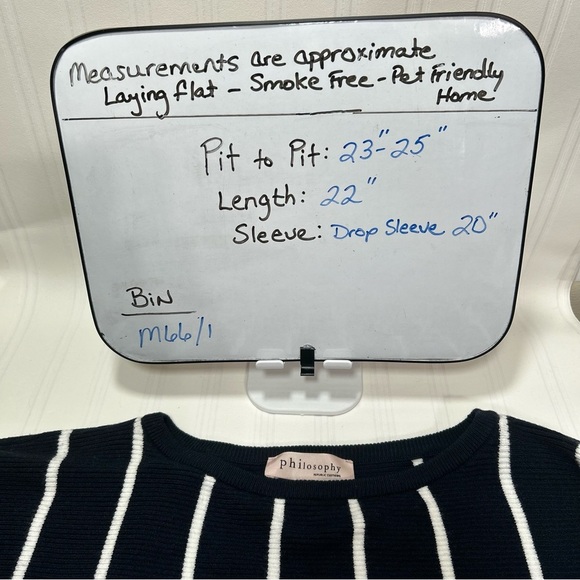 Measurements are approximate
Laying flat - Smoke Free - Pet Friendly
Home
Pit to Pit: 23"-25"
Length: 22"
Sleeve: Drop Sleeve 20"
BiN
M66/1
philosophy